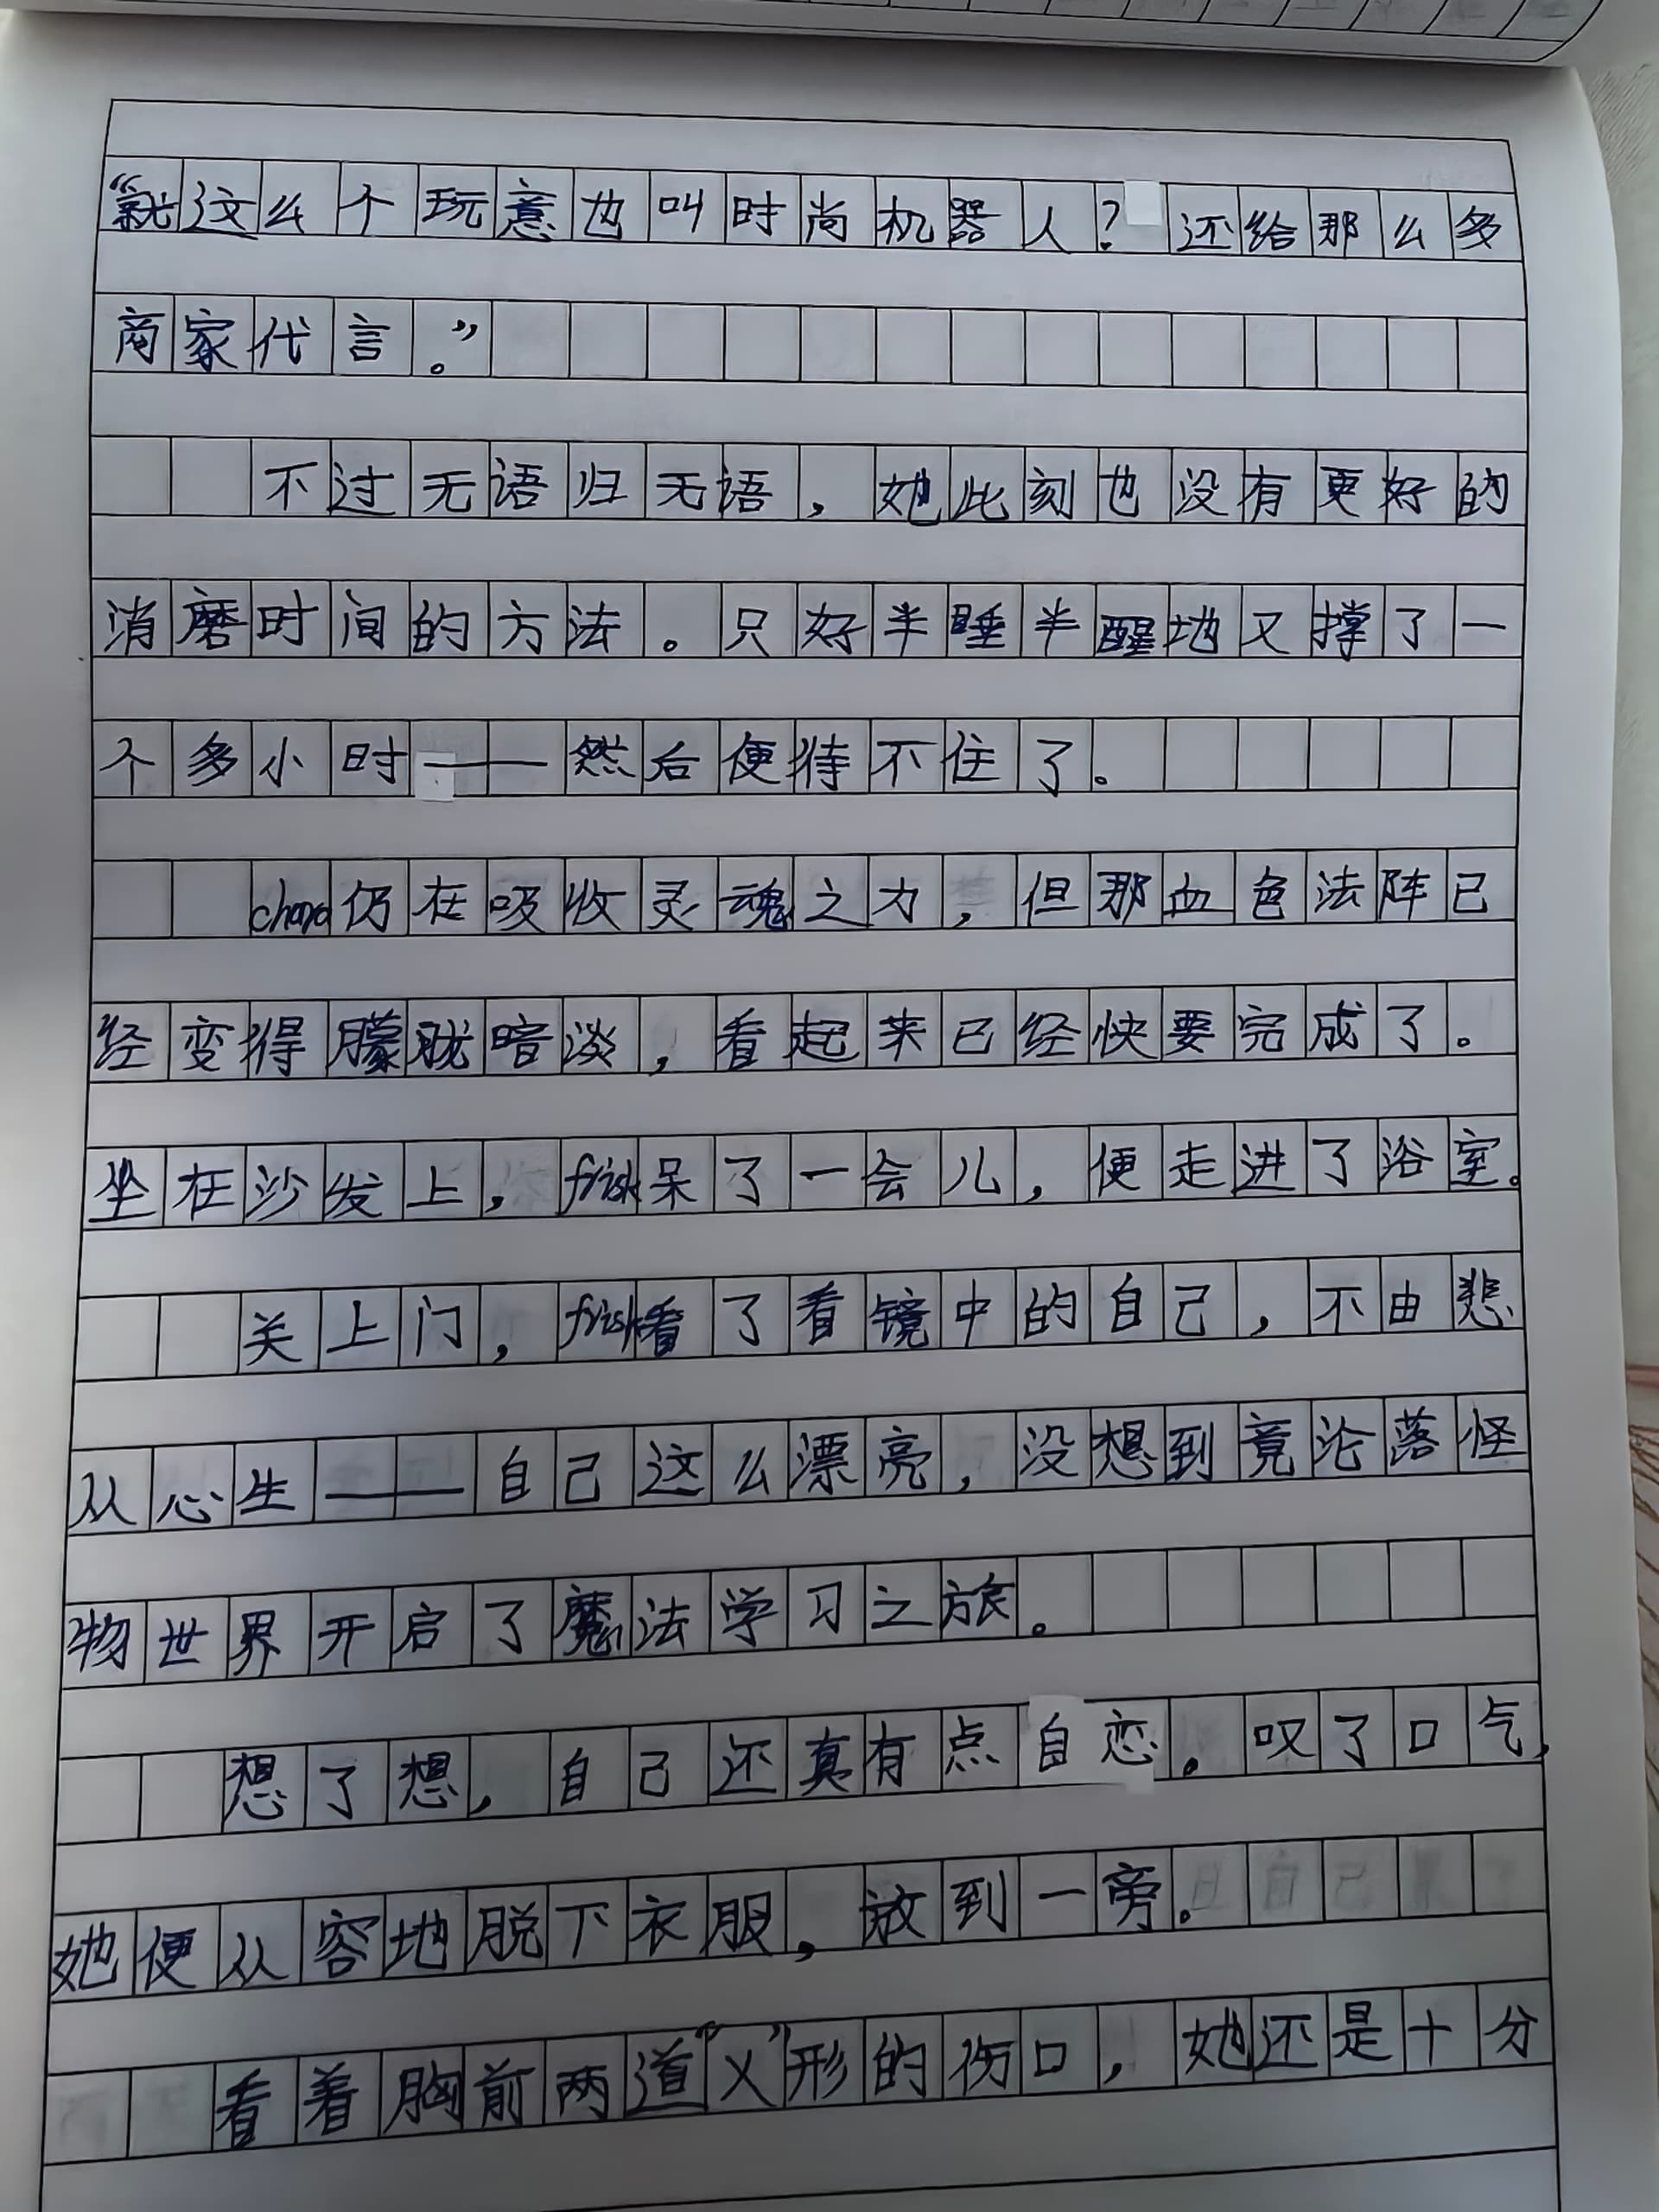 “就这么个玩意也叫时尚机器人？还给那么多
商家代言。”
不过无语归无语，她此刻也没有更好的
消磨时间的方法。只好半睡半醒地又撑了一
个多小时——然后便待不住了。
chara仍在吸收灵魂之力，但那血色法阵已
经变得朦胧暗淡，看起来已经快要完成了。
坐在沙发上，frisk呆了一会儿，便走进了浴室。
关上门，frisk看了看镜中的自己，不由悲
从心生——自己这么漂亮，没想到竟沦落怪
物世界开启了魔法学习之旅。
想了想，自己还真有点自恋。叹了口气，
她便从容地脱下衣服，放到一旁。
看着胸前两道“X”形的伤口，她还是十分